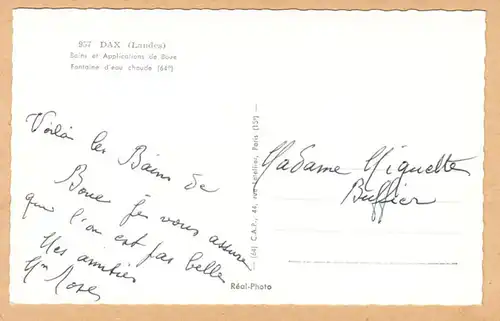 957 DAX (Landes)
Bains et Applications de Boue
Fontaine d'eau chaude (64º)
Voilà les Bains de
Boue je vous assure
que l'on est pas belle
Mes amitiés
Madame Miquette
Buffier
(64) C.A.P., 44, rue Letellier, Paris (15º)
Réal-Photo